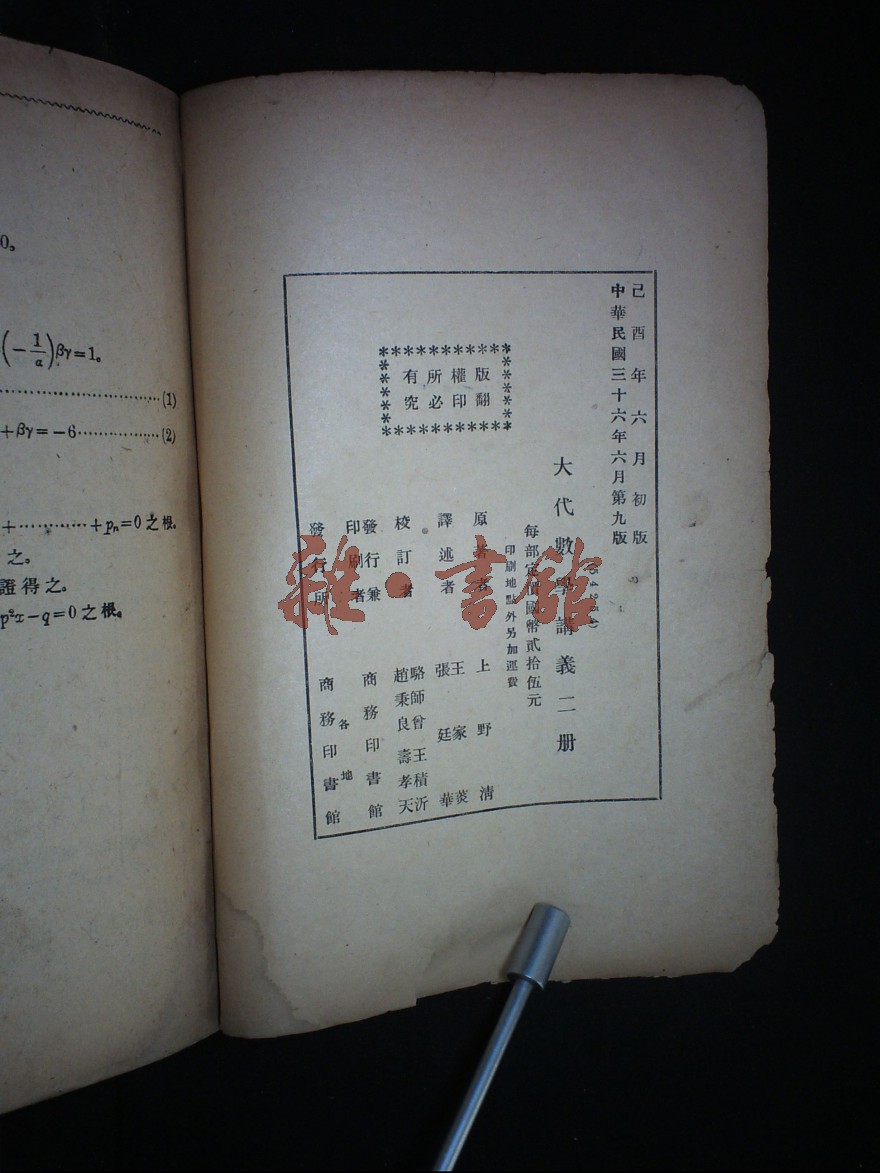 0。
(-1/α)βγ=1。
(1)
+βγ=-6 (2)
+…………+pₙ=0之根。
之。
證得之。
p²x-q=0之根。
己酉年六月初版
中華民國三十六年六月第九版
大代數學講義二册
每部定價國幣貳拾伍元
印刷地點外另加運費
版權所有
翻印必究
原著者 上野清
譯述者 王家菼
張廷華
校訂者 駱師曾 王積沂
趙秉良 壽孝天
發行兼
印刷者 商務印書館
發行所 各地
商務印書館
雜·書館